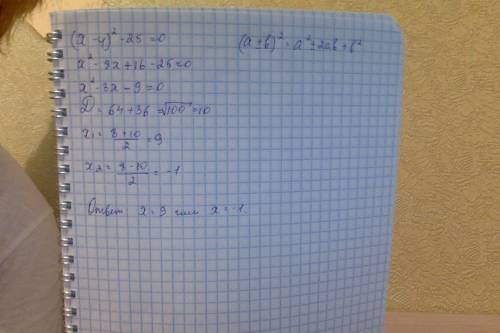 (x-4)²-25=0
(a±b)²=a²±2ab+b²
x²-8x+16-25=0
x²-8x-9=0
D=64+36=√100=10
x₁=(8+10)/2=9
x₂=(8-10)/2=-1
Ответ x=9 или x=-1.